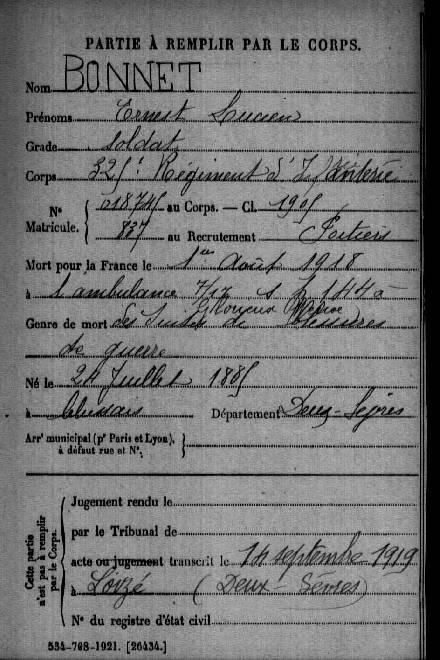 PARTIE À REMPLIR PAR LE CORPS.
Nom BONNET
Prénoms Ernest Lucien
Grade Soldat
Corps 325e Régiment d'Infanterie
N° Matricule. 018745 au Corps. — Cl. 1905
837 au Recrutement Poitiers
Mort pour la France le 1er Août 1918
à l'ambulance 7/17 S. P. 144
Genre de mort des suites de Blessures
de guerre
Né le 24 Juillet 1885
à Clussais Département Deux-Sèvres
Arrt municipal (pr Paris et Lyon), à défaut rue et N°.
Cette partie n'est pas à remplir par le Corps.
Jugement rendu le
par le Tribunal de
acte ou jugement transcrit le 14 septembre 1919
à Lorzé (Deux-Sèvres)
N° du registre d'état civil
534-708-1921. [26434.]